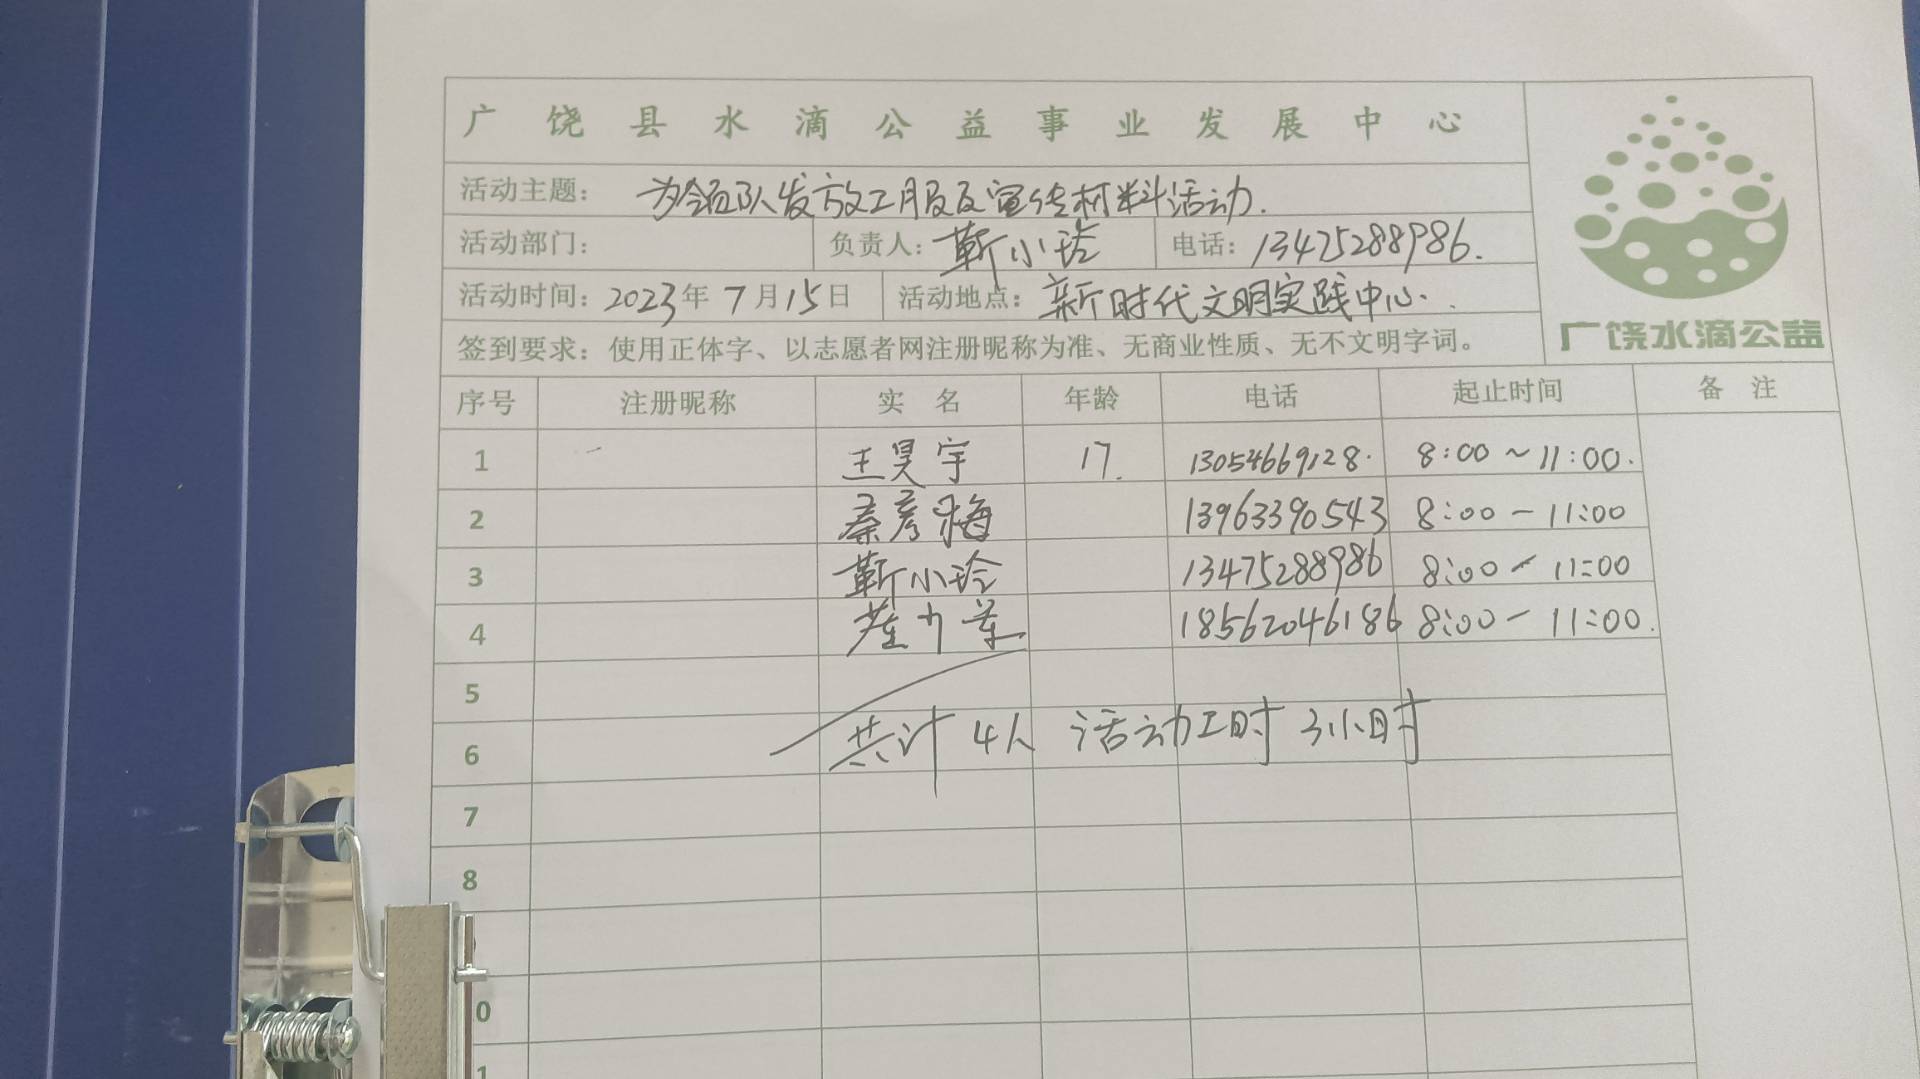 广饶县水滴公益事业发展中心
活动主题：为领队发放工服及宣传材料活动.
活动部门： 负责人：靳小玲 电话：13475288986.
活动时间：2023年7月15日 活动地点：新时代文明实践中心.
签到要求：使用正体字、以志愿者网注册昵称为准、无商业性质、无不文明字词。
广饶水滴公益
序号 注册昵称 实名 年龄 电话 起止时间 备注
1 王昊宇 17. 13054669128. 8:00～11:00.
2 秦彦梅 13963390543 8:00-11:00
3 靳小玲 13475288986 8:00-11:00
4 18562046186 8:00-11:00.
5
6 共计4人 活动工时3小时
7
8
0
1